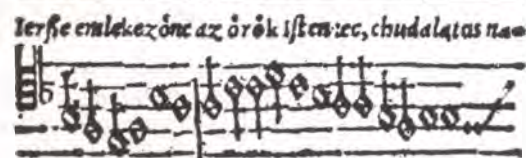 Ierſſe emlekezőnc az őrők iſtennec, chudalatas na=